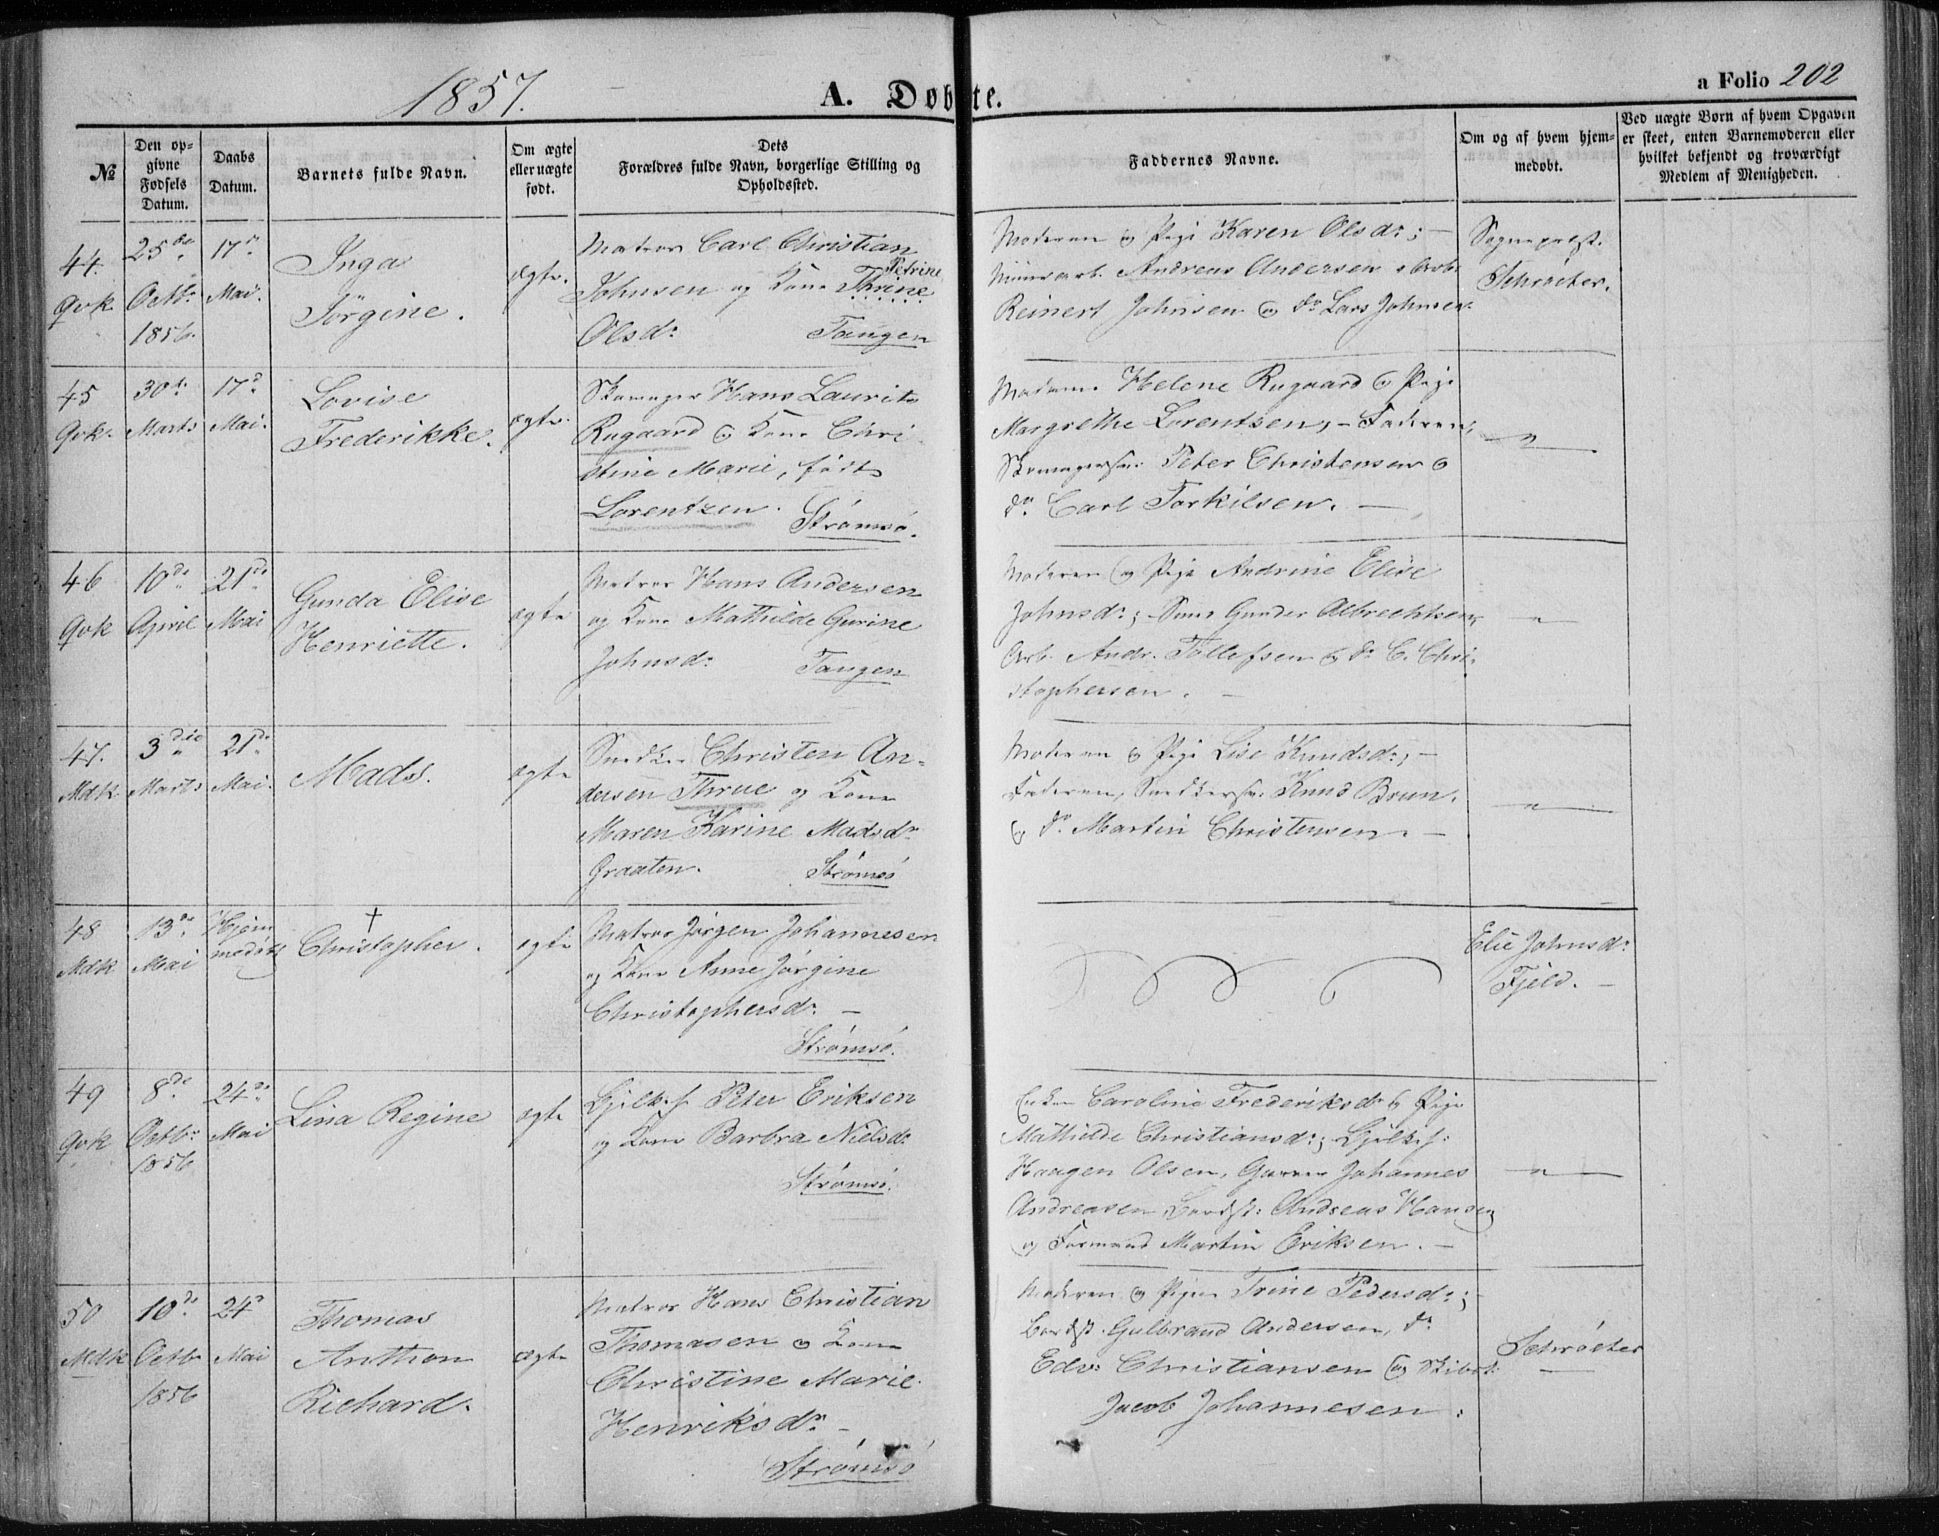 1857.
A. Døbte.
a Folio 202
№
Den op-
givne
Fødsels
Datum.
Daabs
Datum.
Barnets fulde Navn.
Om ægte
eller uægte
født.
Dets
Forældres fulde Navn, borgerlige Stilling og
Opholdssted.
Faddernes Navne.
Om og af hvem hjem-
medøbt.
Ved uægte Børn af hvem Opgaven
er skeet, enten Barnemoderen eller
hvilket bekjendt og troværdigt
Medlem af Menigheden.
44
Qvk
25de
Octbr
1856.
17d
Mai.
Inga
Jörgine.
ægte.
Matros Carl Christian
Petrine
Johnsen og Kone Thrine
Olsdr
Tangen
Moderen og Pige Karen Olsdr; —
Andreas Andersen, Arb.
Reinert Johnsen og do Lars Johnsen
Sognepræst
Schrøeter.
45
Qvk.
30d
Marts
17d
Mai.
Lovise
Frederikke.
ægte.
Skomager Hans Laurits
Rugaard og Kone Chri-
stine Marie, født
Lorentzen.
Strømsö.
Madame Helene Rugaard og Pige
Margrethe Lorentsen, – Faderen,
Peter Christensen og
do Carl Torkilsen. —
— " —
46
Qvk
10de
April
21de
Mai
Gunda Elise
Henriette.
ægte
Matros Hans Andersen
og Kone Mathilde Gurine
Johnsdr
Tangen
Moderen og Pige Andrine Elise
Johnsdr; Gunder Albrechtsen,
Arb. Andr. Tollefsen og do C. Chri-
stophersen. —
— " —
47.
Mdk
3die
Marts
21de
Mai.
Mads.
ægte
Snedker Christen An-
dersen Thrue og Kone
Maren Karine Madsdr
Graaten.
Strömsö
Moderen og Pige Lise Knudsdr; —
Faderen, Knud Brun.
og do Martin Christensen. —
— " —
48
Mdk
13de
Mai
Hjem-
medøbt
†
Christopher.
ægte
Matros Jørgen Johannesen
og Kone Anne Jørgine
Christophersdr —
Strömsö.
Elie Johnsdr
Fjeld. —
49
Qvk
8de
Octbr
1856
24de
Mai
Lina Regine
ægte
Peter Eriksen
og Kone Barbra Nielsdr
Strömsö.
Enken Caroline Frederiksdr og Pige
Mathilde Christiansdr;
Haagen Olsen, Johannes
Andreasen Andreas Hansen
og Formand Martin Eriksen. —
— " —
50
Mdk
10de
Octbr
1856
24d
Mai
Thomas
Anthon
Richard.
ægte
Matros Hans Christian
Thomasen og Kone
Christine Marie
Henriksdr —
Strömsö
Moderen og Pigen Trine Pedersdr;
Gulbrand Andersen, do
Edv. Christiansen og
Jacob Johannesen.
Schrøeter
—